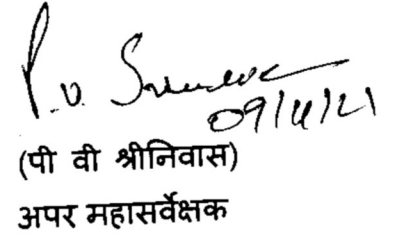 P.V. Srinivas
09/11/21
(पी वी श्रीनिवास)
अपर महासर्वेक्षक